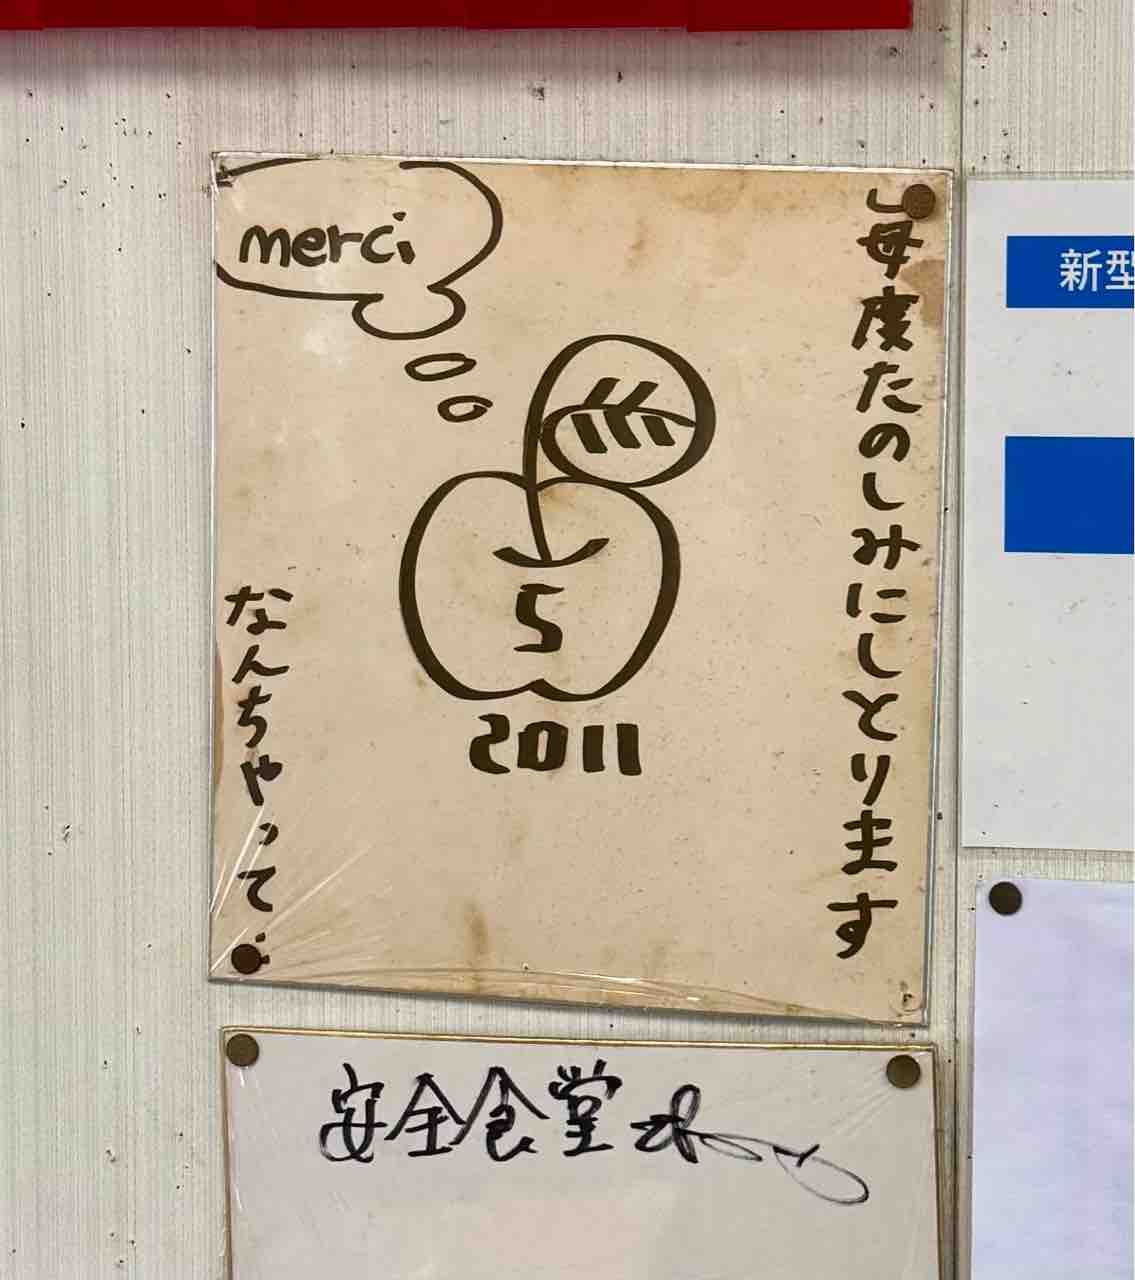 merci
毎度たのしみにしとります
5
2011
なんちゃって
新型
安全食堂